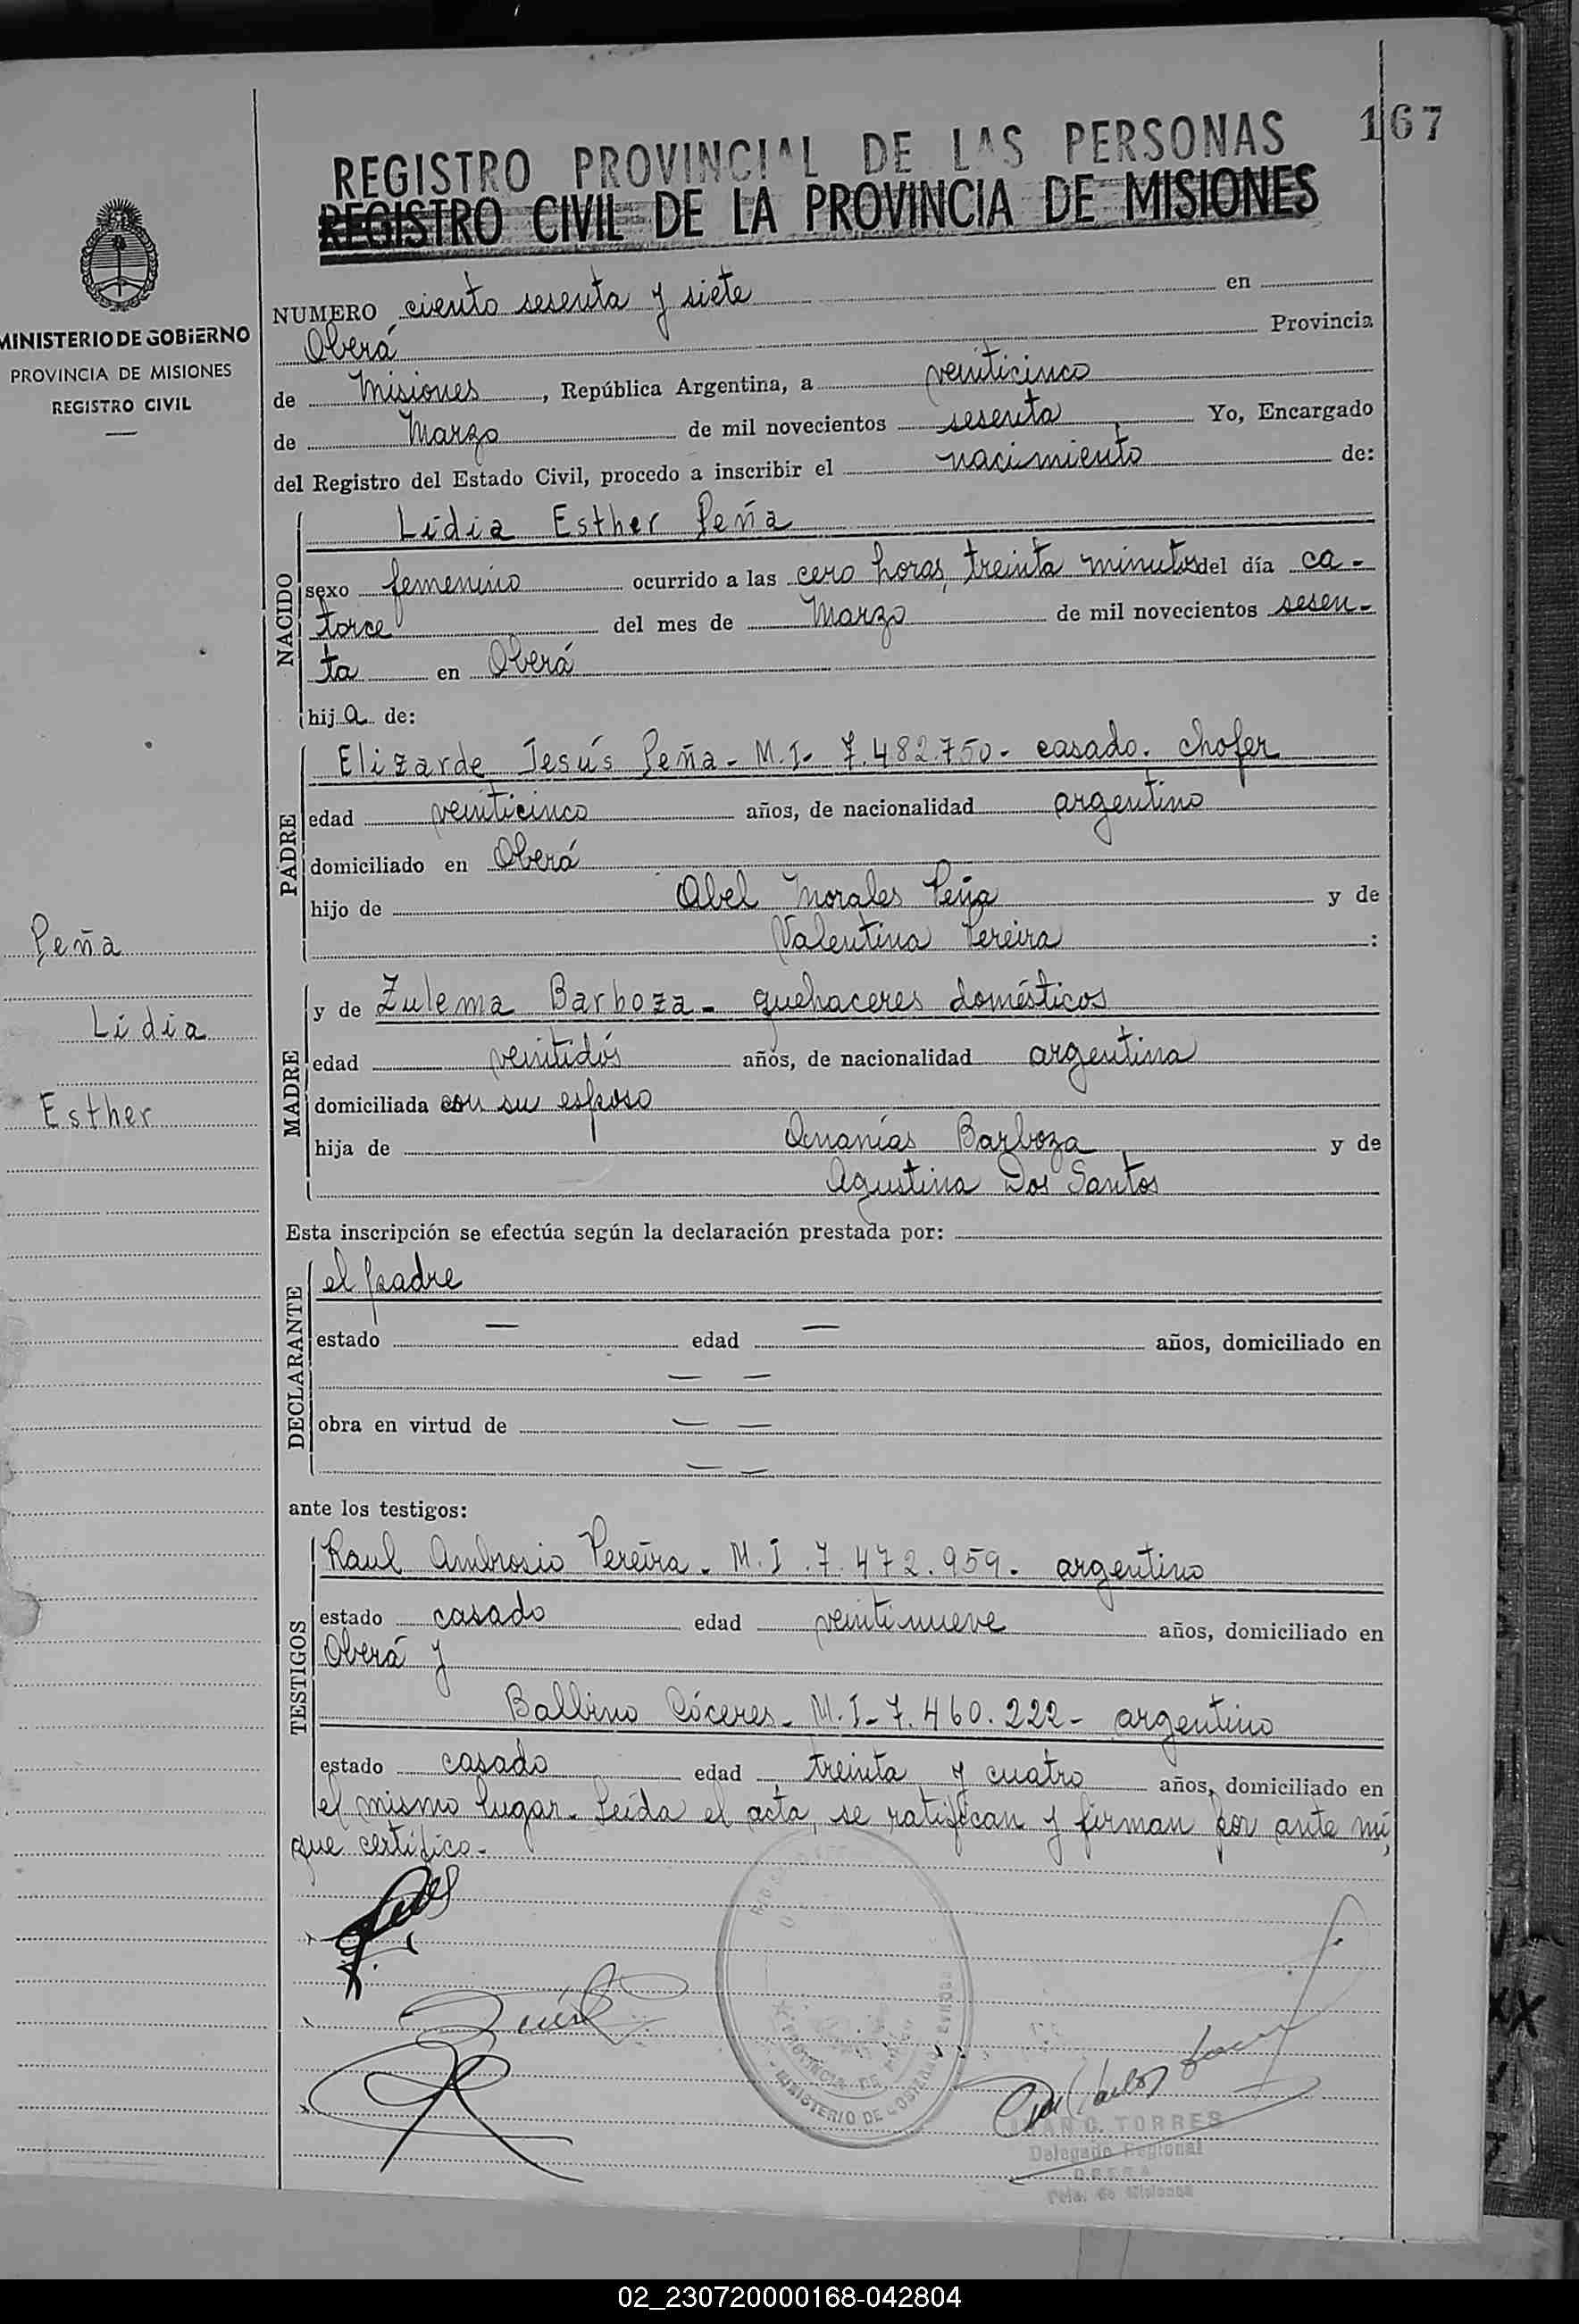 167
REGISTRO PROVINCIAL DE LAS PERSONAS
REGISTRO CIVIL DE LA PROVINCIA DE MISIONES
MINISTERIO DE GOBIERNO
PROVINCIA DE MISIONES
REGISTRO CIVIL
NUMERO ciento sesenta y siete en
Oberá Provincia
de Misiones, República Argentina, a veinticinco
de Marzo de mil novecientos sesenta Yo, Encargado
del Registro del Estado Civil, procedo a inscribir el nacimiento de:
NACIDO
Lidia Esther Peña
sexo femenino ocurrido a las cero horas, treinta minutos del día ca-
torce del mes de Marzo de mil novecientos sesen-
ta en Oberá
hija de:
PADRE
Elizarde Jesús Peña - M.I- 7.482.750- casado. chofer
edad veinticinco años, de nacionalidad argentino
domiciliado en Oberá
hijo de Abel Morales Peña y de
Valentina Pereira :
Peña
Lidia
Esther
MADRE
y de Zulema Barboza - quehaceres domésticos
edad veintidós años, de nacionalidad argentina
domiciliada con su esposo
hija de Ananías Barboza y de
Agustina Dos Santos
Esta inscripción se efectúa según la declaración prestada por:
DECLARANTE
el padre
estado — edad — años, domiciliado en
— —
obra en virtud de — —
— —
ante los testigos:
TESTIGOS
Raul Ambrosio Pereira - M.I. 7.472.959. argentino
estado casado edad veintinueve años, domiciliado en
Oberá y
Balbino Cóceres - M.I- 7.460.222- argentino
estado casado edad treinta y cuatro años, domiciliado en
el mismo lugar. Leída el acta, se ratifican y firman por ante mí,
que certifico.-
PROVINCIA DE
MINISTERIO DE GOBIERNO
JUAN C. TORRES
Delegado Regional
OBERA
Pcia. de Misiones
02_230720000168-042804